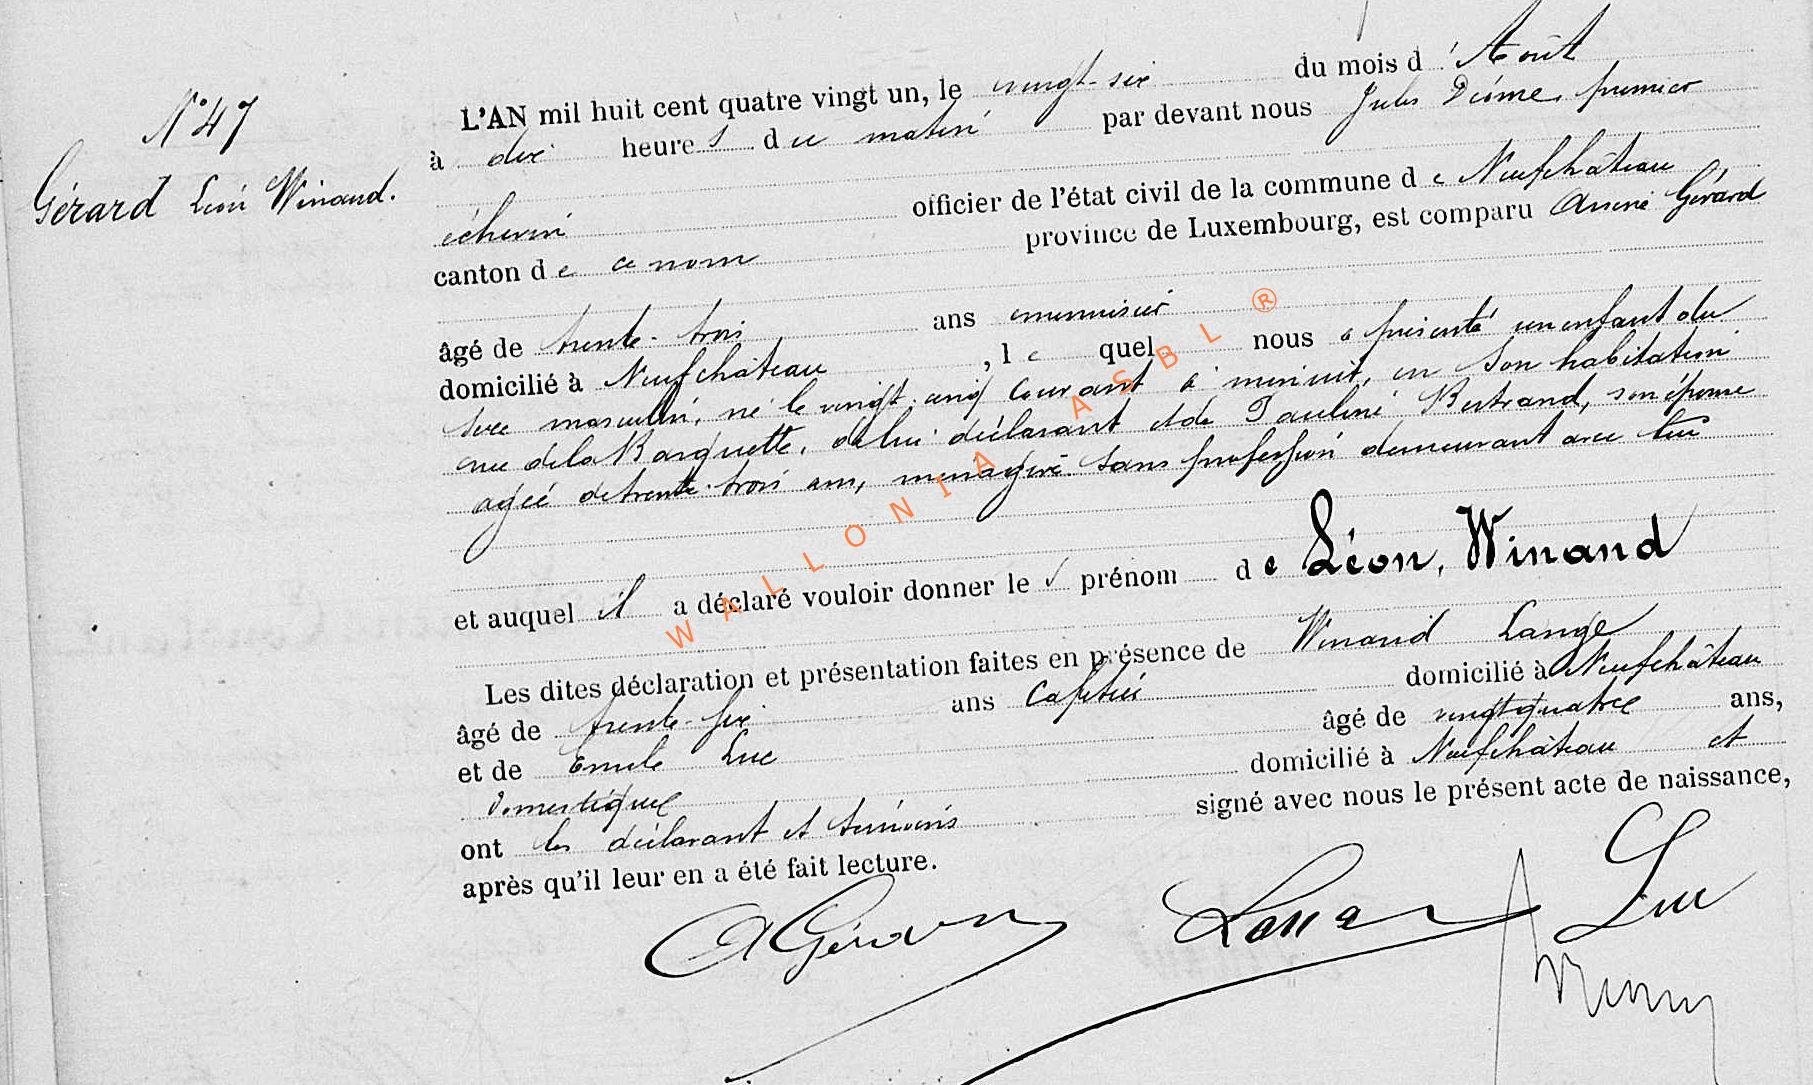 N° 47
Gérard Léon Winand.
L'AN mil huit cent quatre vingt un, le vingt-six du mois d'Août
à dix heures du matin par devant nous Jules premier
échevin officier de l'état civil de la commune de Neufchâteau
canton de ce nom province de Luxembourg, est comparu Gérard
âgé de trente-trois ans menuisier
domicilié à Neufchâteau, lequel nous a présenté un enfant du
sexe masculin, né le vingt-cinq courant à minuit, en son habitation
rue de la Barquette, de lui déclarant et de Pauline Bertrand, son épouse
agée de trente-trois ans, ménagère sans profession demeurant avec lui
et auquel il a déclaré vouloir donner les prénom de Léon, Winand
Les dites déclaration et présentation faites en présence de Winand Lange
âgé de trente-six ans cafetier domicilié à Neufchâteau
et de Emile Luc âgé de vingt quatre ans,
domestique domicilié à Neufchâteau et
ont les déclarant et témoins signé avec nous le présent acte de naissance,
après qu'il leur en a été fait lecture.
A Gérard Luc
WALLONIA ASBL ®